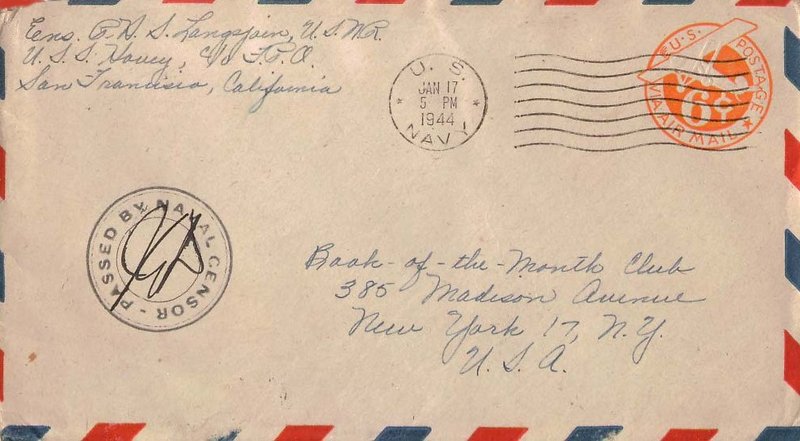 Ens. P. D. S. Langsjoin, U.S.N.R.
U.S.S. Hovey, c/o F.P.O.
San Francisco, California
U. S.
JAN 17
5 PM
1944
NAVY
U.S. POSTAGE
6¢
VIA AIR MAIL
PASSED BY NAVAL CENSOR
Book-of-the-Month Club
385 Madison Avenue
New York 17, N.Y.
U.S.A.